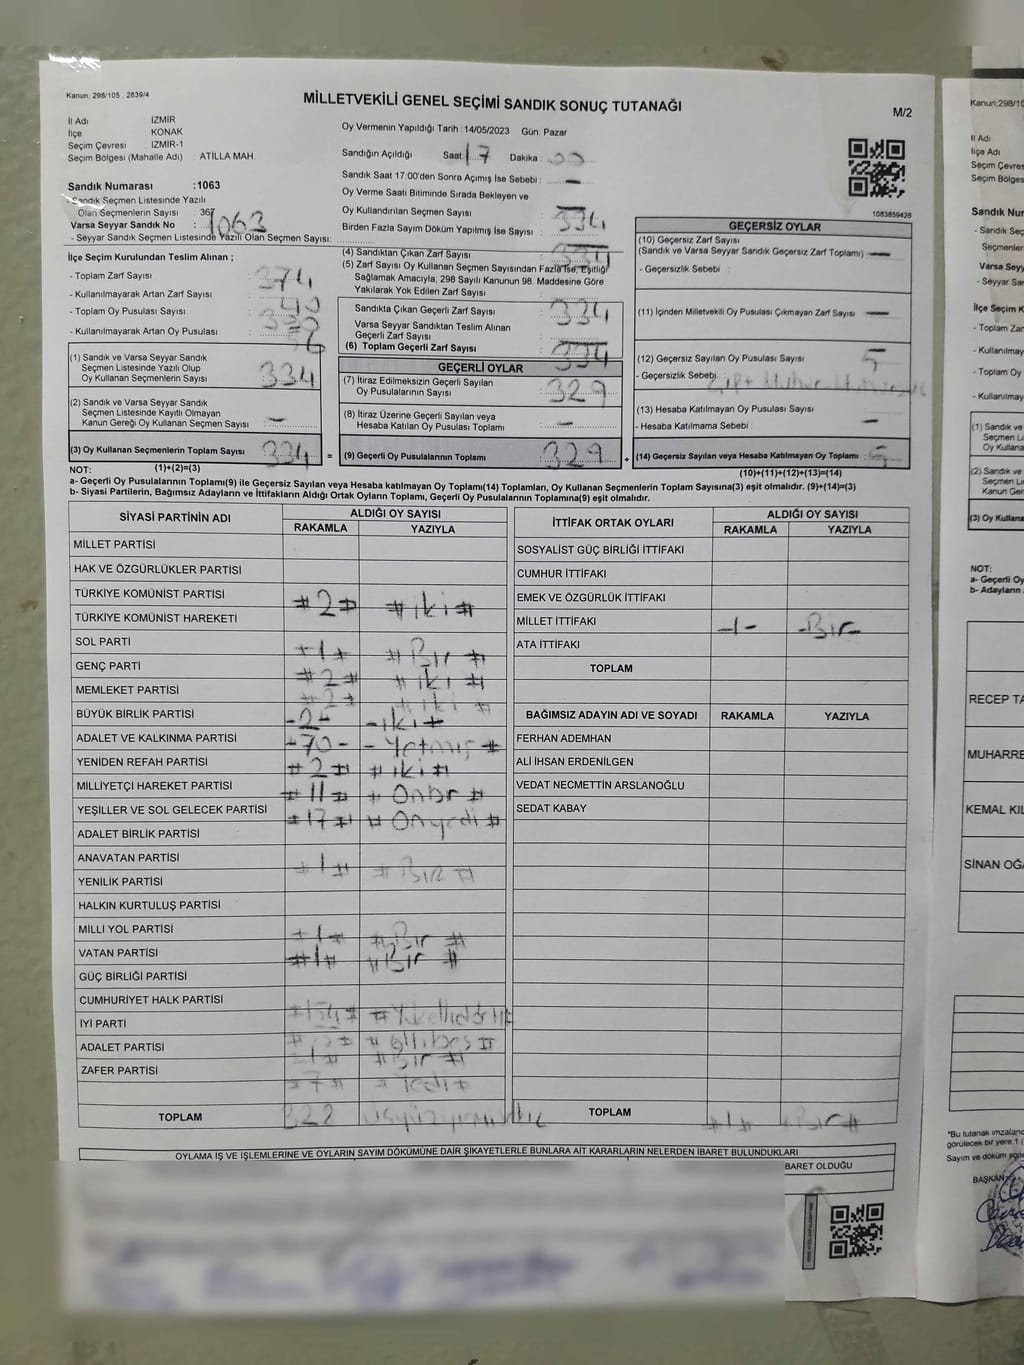 Kanun: 298/105 , 2839/4
MİLLETVEKİLİ GENEL SEÇİMİ SANDIK SONUÇ TUTANAĞI
M/2
İl Adı : İZMİR
İlçe : KONAK
Seçim Çevresi : İZMİR-1
Seçim Bölgesi (Mahalle Adı) : ATİLLA MAH.
Oy Vermenin Yapıldığı Tarih :14/05/2023 Gün: Pazar
Sandığın Açıldığı Saat: 17 Dakika : 00
Sandık Saat 17:00'den Sonra Açımış İse Sebebi : —
Oy Verme Saati Bitiminde Sırada Bekleyen ve
Oy Kullandırılan Seçmen Sayısı : 334
Birden Fazla Sayım Döküm Yapılmış İse Sayısı :
1083859428
Sandık Numarası :1063
- Sandık Seçmen Listesinde Yazılı
Olan Seçmenlerin Sayısı : 367
Varsa Seyyar Sandık No : 1063
- Seyyar Sandık Seçmen Listesinde Yazılı Olan Seçmen Sayısı:
İlçe Seçim Kurulundan Teslim Alınan ;
- Toplam Zarf Sayısı : 374
- Kullanılmayarak Artan Zarf Sayısı : 40
- Toplam Oy Pusulası Sayısı :
- Kullanılmayarak Artan Oy Pusulası :
(1) Sandık ve Varsa Seyyar Sandık
Seçmen Listesinde Yazılı Olup
Oy Kullanan Seçmenlerin Sayısı : 334
(2) Sandık ve Varsa Seyyar Sandık
Seçmen Listesinde Kayıtlı Olmayan
Kanun Gereği Oy Kullanan Seçmen Sayısı : —
(3) Oy Kullanan Seçmenlerin Toplam Sayısı : 334
(4) Sandıktan Çıkan Zarf Sayısı : 334
(5) Zarf Sayısı Oy Kullanan Seçmen Sayısından Fazla İse, Eşitliği
Sağlamak Amacıyla, 298 Sayılı Kanunun 98. Maddesine Göre
Yakılarak Yok Edilen Zarf Sayısı :
Sandıkta Çıkan Geçerli Zarf Sayısı : 334
Varsa Seyyar Sandıktan Teslim Alınan
Geçerli Zarf Sayısı :
(6) Toplam Geçerli Zarf Sayısı : 334
GEÇERLİ OYLAR
(7) İtiraz Edilmeksizin Geçerli Sayılan
Oy Pusulasının Sayısı : 329
(8) İtiraz Üzerine Geçerli Sayılan veya
Hesaba Katılan Oy Pusulası Toplamı : —
= (9) Geçerli Oy Pusulalarının Toplamı : 329
GEÇERSİZ OYLAR
(10) Geçersiz Zarf Sayısı
(Sandık ve Varsa Seyyar Sandık Geçersiz Zarf Toplamı) : —
- Geçersizlik Sebebi :
(11) İçinden Milletvekili Oy Pusulası Çıkmayan Zarf Sayısı : —
(12) Geçersiz Sayılan Oy Pusulası Sayısı : 5
- Geçersizlik Sebebi :
(13) Hesaba Katılmayan Oy Pusulası Sayısı :
- Hesaba Katılmama Sebebi : —
+ (14) Geçersiz Sayılan veya Hesaba Katılmayan Oy Toplamı : 5
NOT: (1)+(2)=(3)
(10)+(11)+(12)+(13)=(14)
a- Geçerli Oy Pusulalarının Toplamı(9) ile Geçersiz Sayılan veya Hesaba katılmayan Oy Toplamı(14) Toplamları, Oy Kullanan Seçmenlerin Toplam Sayısına(3) eşit olmalıdır. (9)+(14)=(3)
b- Siyasi Partilerin, Bağımsız Adayların ve İttifakların Aldığı Ortak Oyların Toplamı, Geçerli Oy Pusulalarının Toplamına(9) eşit olmalıdır.
SİYASİ PARTİNİN ADI
ALDIĞI OY SAYISI
RAKAMLA YAZIYLA
MİLLET PARTİSİ
HAK VE ÖZGÜRLÜKLER PARTİSİ
TÜRKİYE KOMÜNİST PARTİSİ # 2 # # iki #
TÜRKİYE KOMÜNİST HAREKETİ
SOL PARTİ # 1 # # Bir #
GENÇ PARTİ # 2 # # iki #
MEMLEKET PARTİSİ # 2 # # iki #
BÜYÜK BİRLİK PARTİSİ - 2 - - iki #
ADALET VE KALKINMA PARTİSİ - 70 - - Yetmiş #
YENİDEN REFAH PARTİSİ # 2 # # iki #
MİLLİYETÇİ HAREKET PARTİSİ # 11 # # Onbir #
YEŞİLLER VE SOL GELECEK PARTİSİ # 17 # # Onyedi #
ADALET BİRLİK PARTİSİ
ANAVATAN PARTİSİ # 1 # # BİR #
YENİLİK PARTİSİ
HALKIN KURTULUŞ PARTİSİ
MİLLİ YOL PARTİSİ # 1 # # Bir #
VATAN PARTİSİ # 1 # # Bir #
GÜÇ BİRLİĞİ PARTİSİ
CUMHURİYET HALK PARTİSİ # 154 #
İYİ PARTİ # 55 # # Ellibeş #
ADALET PARTİSİ # 1 # # Bir #
ZAFER PARTİSİ # 7 # # Yedi #
TOPLAM 328
İTTİFAK ORTAK OYLARI
ALDIĞI OY SAYISI
RAKAMLA YAZIYLA
SOSYALİST GÜÇ BİRLİĞİ İTTİFAKI
CUMHUR İTTİFAKI
EMEK VE ÖZGÜRLÜK İTTİFAKI
MİLLET İTTİFAKI -1- -Bir-
ATA İTTİFAKI
TOPLAM
BAĞIMSIZ ADAYIN ADI VE SOYADI RAKAMLA YAZIYLA
FERHAN ADEMHAN
ALİ İHSAN ERDENİLGEN
VEDAT NECMETTİN ARSLANOĞLU
SEDAT KABAY
TOPLAM # 1 # # Bir #
OYLAMA İŞ VE İŞLEMLERİNE VE OYLARIN SAYIM DÖKÜMÜNE DAİR ŞİKAYETLERLE BUNLARA AİT KARARLARIN NELERDEN İBARET BULUNDUKLARI
BARET OLDUĞU
Kanun:298/10
İl Adı
İlçe Adı
Seçim Çevres
Seçim Bölges
Sandık Nur
- Sandık Seç
Seçmenleri
Varsa Seyy
- Seyyar Sa
İlçe Seçim K
- Toplam Zarı
- Kullanılmay
- Toplam Oy
- Kullanılmay
(1) Sandık ve
Seçmen Li
Oy Kullana
(2) Sandık ve
Seçmen Li
Kanun Ger
(3) Oy Kullana
NOT:
a- Geçerli Oy
b- Adayların
RECEP TA
MUHARRE
KEMAL KIL
SİNAN OĞ
*Bu tutanak imzalanc
görülecek bir yere 1 (
Sayım ve döküm
BAŞKAN